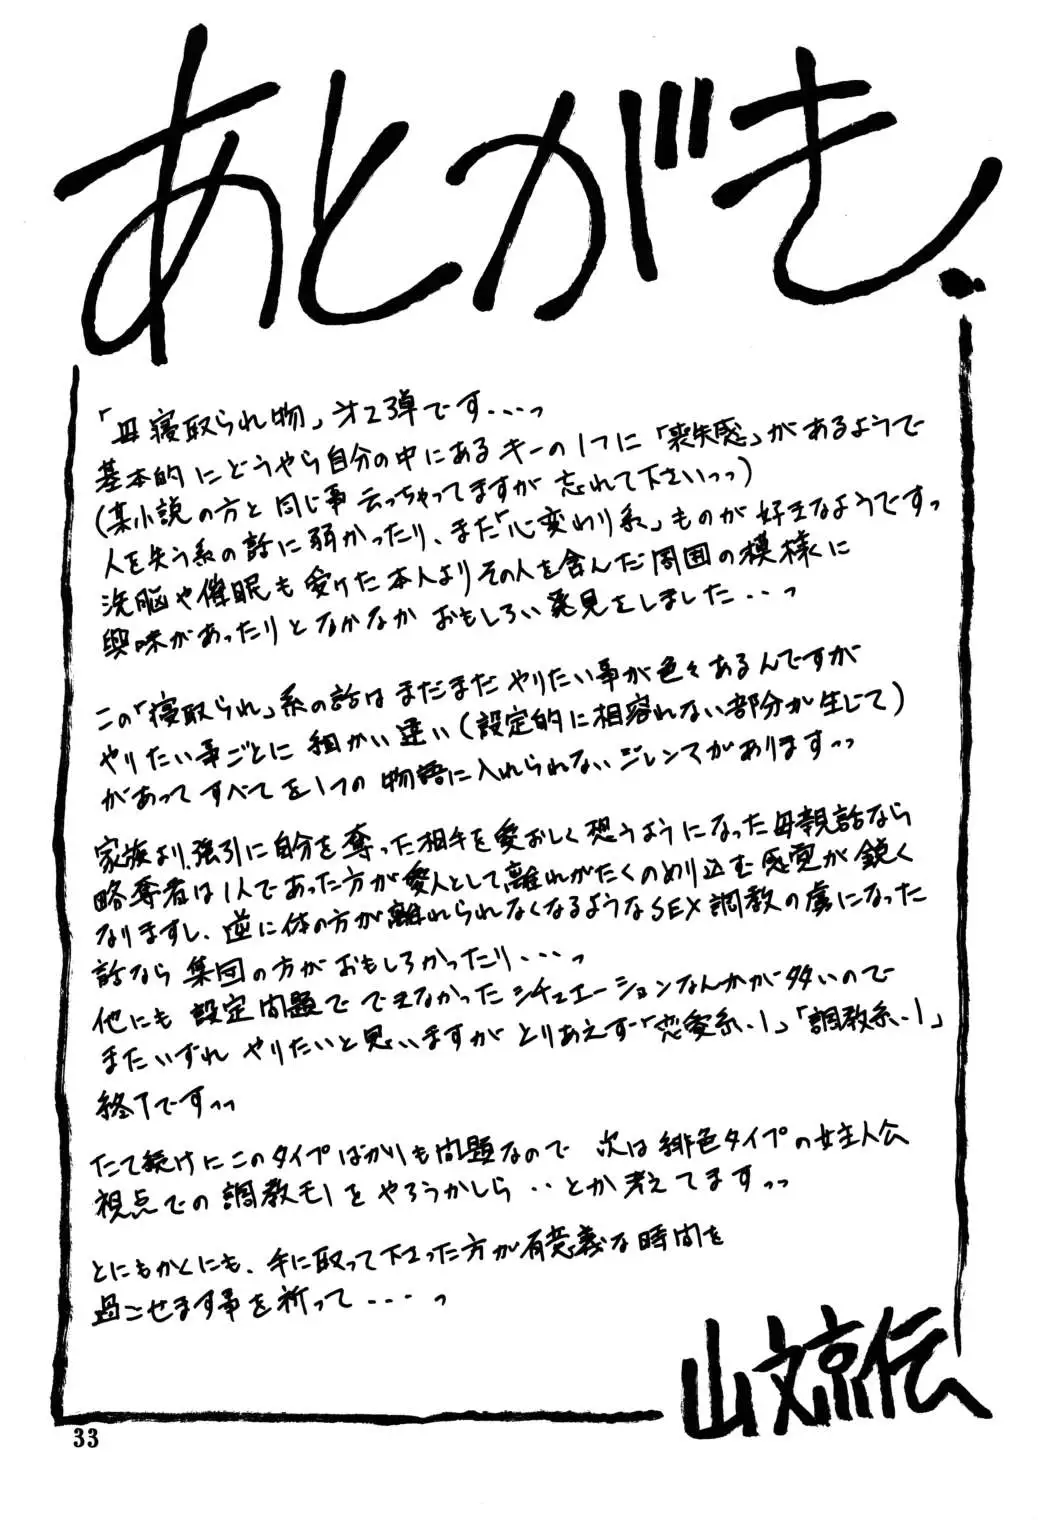 あとがき.
「母寝取られ物」才2弾です...っ
基本的にどうやら自分の中にあるキーの1つに「喪失感」があるようで
(某小説の方と同じ事云っちゃってますが忘れて下さいっっ)
人を失う系の話に弱かったり、また「心変わり系」ものが好きなようですっ
洗脳や催眠も受けた本人よりその人を含んだ周囲の模様に
興味があったりとなかなかおもしろい発見をしました...っ
この「寝取られ」系の話はまだまだやりたい事が色々あるんですが
やりたい事ごとに細かい違い(設定的に相容れない部分が生じて)
があってすべてを1つの物語に入れられないジレンマがありますっっ
家族より、強引に自分を奪った相手を愛おしく想うようになった母親話なら
略奪者は1人であった方が愛人として離れがたくのめり込む感覚が鋭く
なりますし、逆に体の方が離れられなくなるようなSEX調教の虜になった
話なら集団の方がおもしろかったり...っ
他にも設定問題でできなかったシチュエーションなんかが多いので
またいずれやりたいと思いますがとりあえず「恋愛系.1」「調教系.1」
終了ですっっ
たて続けにこのタイプばかりも問題なので 次は緋色タイプの女主人公
視点での調教モノをやろうかしら..とか考えてますっっ
とにもかくにも、手に取って下さった方が有意義な時間を
過ごせます事を祈って....っ
山文京伝
33